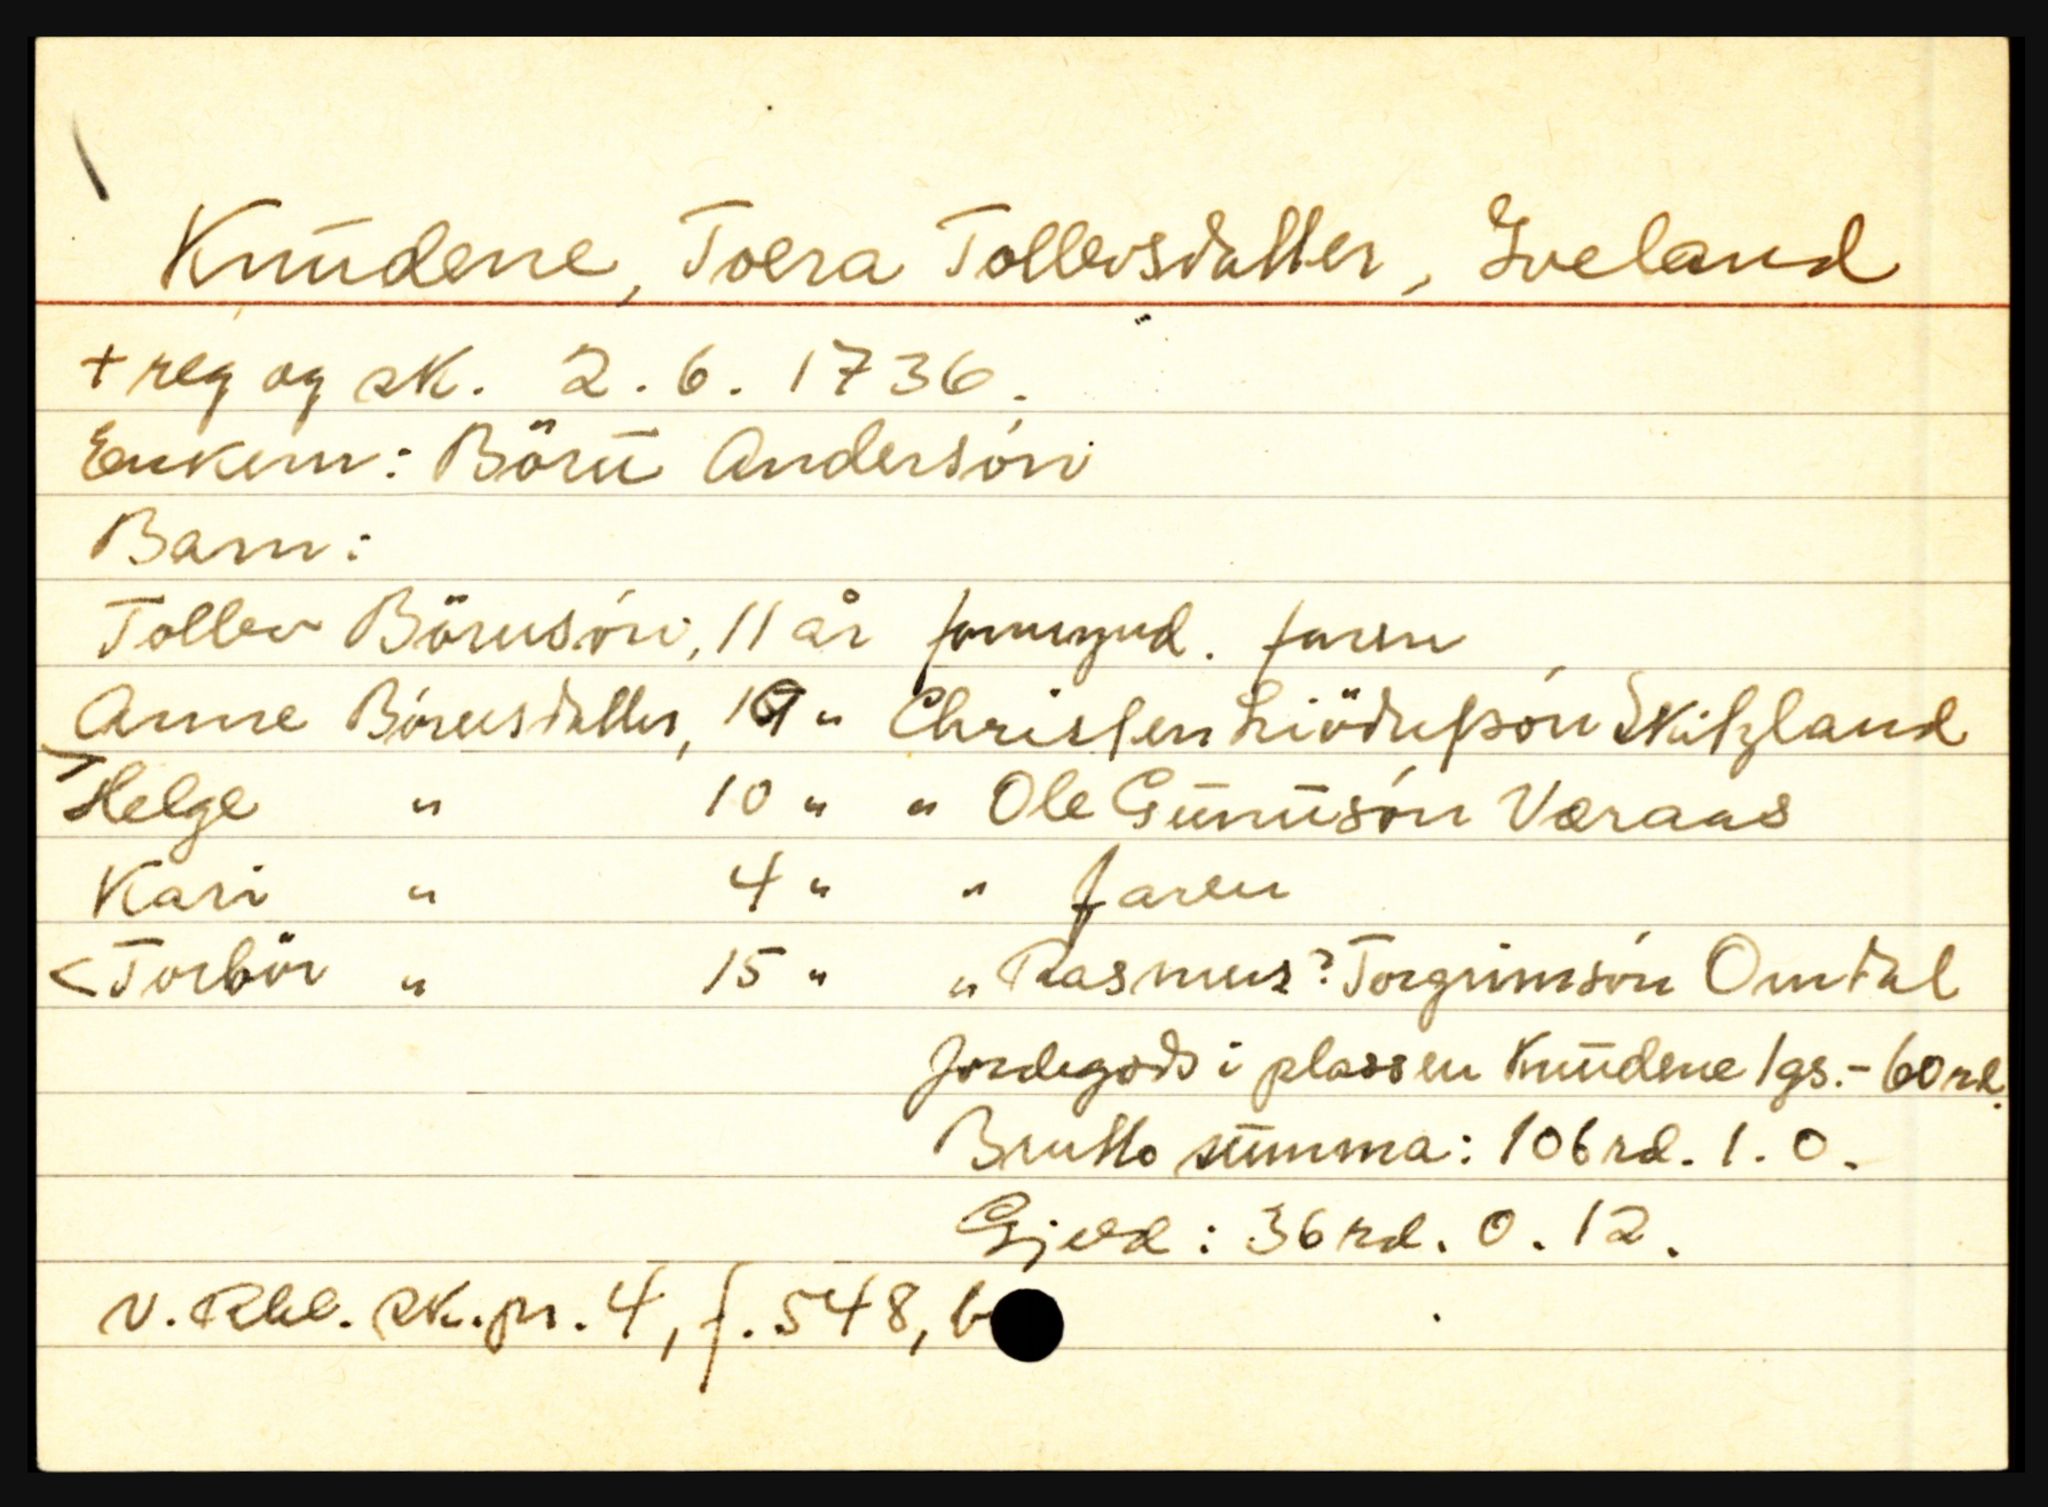 Knudene, Toera Tollevsdatter, Iveland
+ reg og sk. 2.6. 1736.
Enkem: Böru Andersón
Barn:
Tollev Börusón, 11 år formynd. faren
Anne Bórusdatter, 19 " Christen Liödufsón Skitzland
Helge " 10 " " Ole Gunusón Væraas
Kari " 4 " " faren
< Torbör " 15 " " Rasmus? Torgrimsón Omdal
Jordegods i plassen Knudene 1 gs. - 60 rd.
Brutto summa: 106 rd. 1. 0.
Gjeld: 36 rd. 0. 12.
v. Rbl. sk.pr. 4, f. 548, b